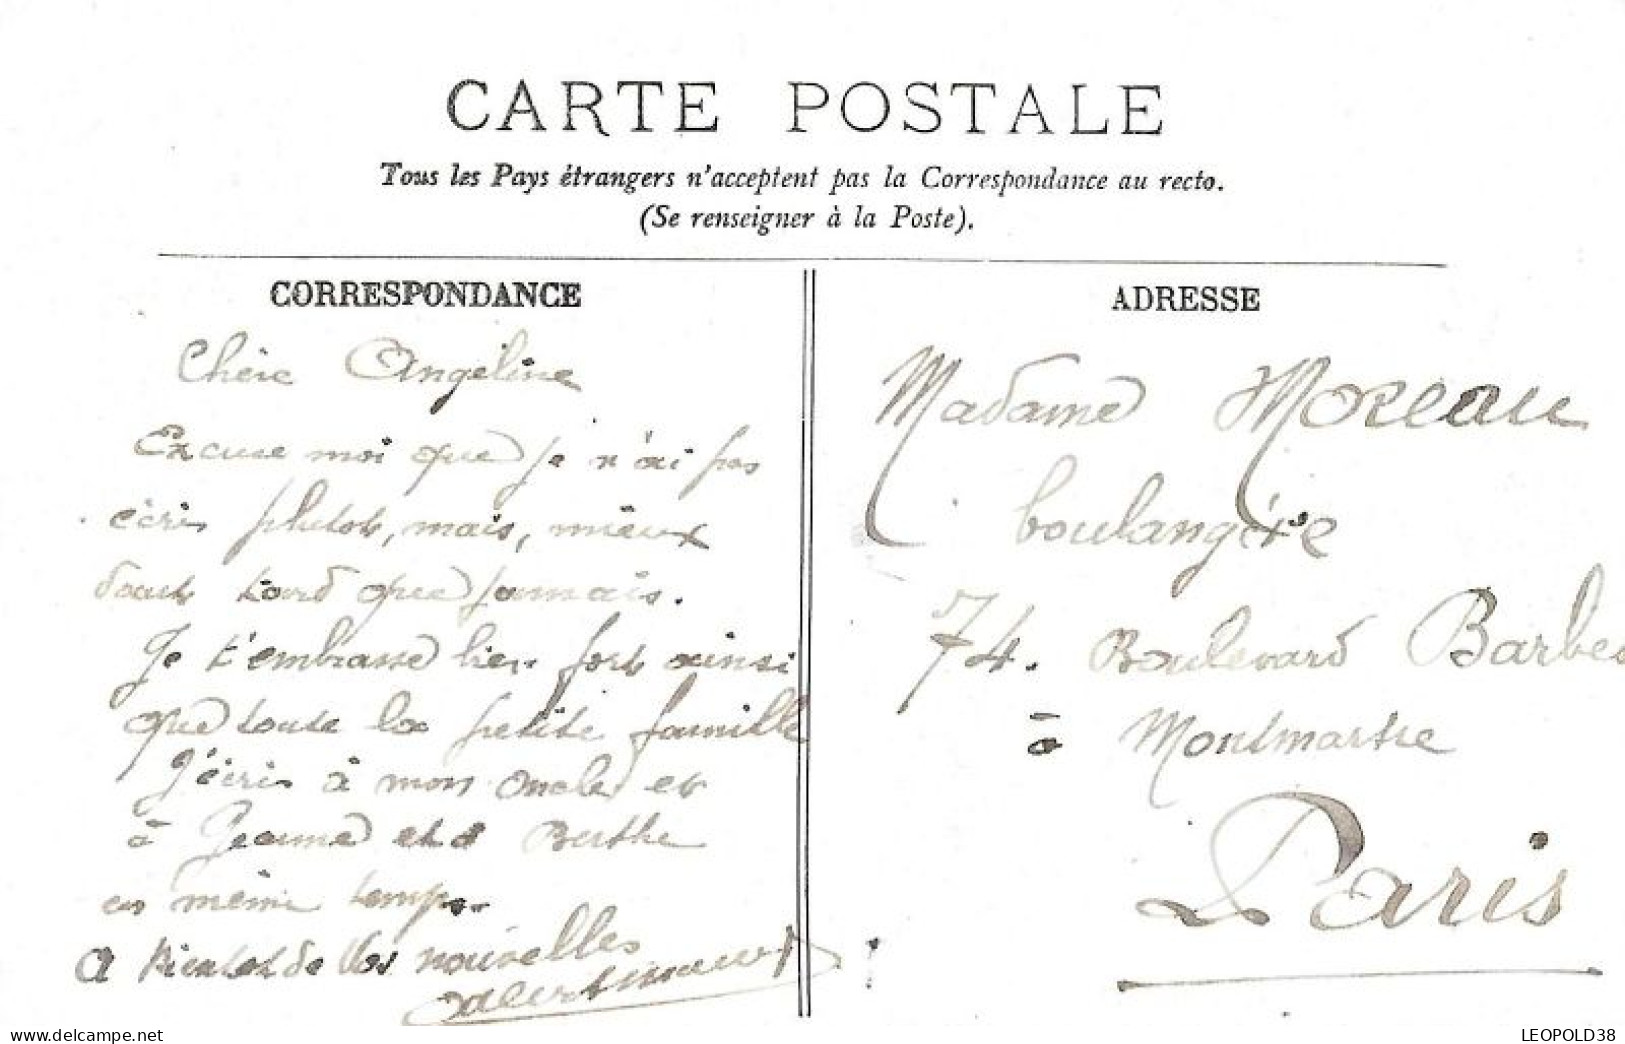 CARTE POSTALE
Tous les Pays étrangers n'acceptent pas la Correspondance au recto.
(Se renseigner à la Poste).
CORRESPONDANCE
Chère Angéline
Excuse moi que je n'ai pas
écris plutot, mais, mieux
vaut tard que jamais.
Je t'embrasse bien fort ainsi
que toute la petite famille
J'écris à mon oncle et
à Jeanne et à Berthe
en même temps.
A bientot de Vos nouvelles
ADRESSE
Madame Moreau
boulangère
74. Boulevard Barbes
à Montmartre
Paris
delcampe.net
LEOPOLD38